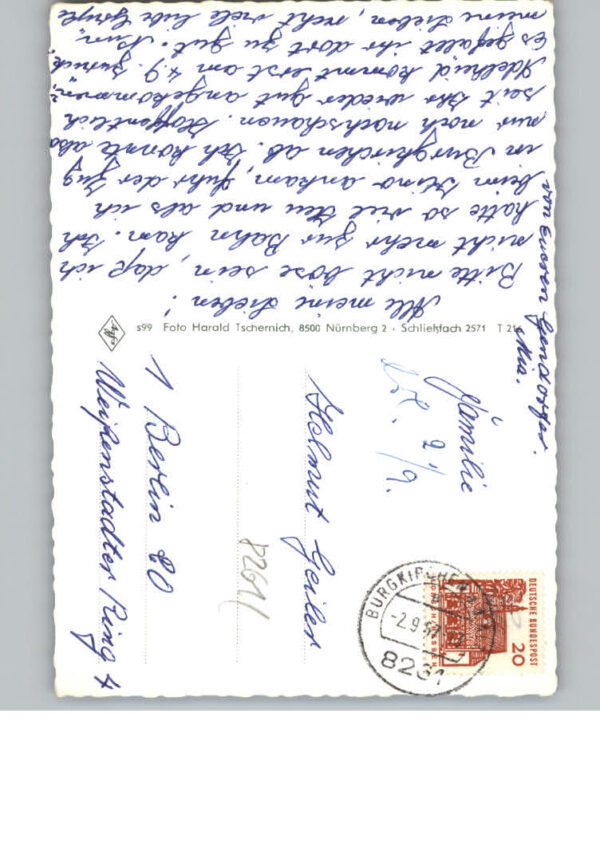 Alle meine Lieben!
Bitte nicht böse sein, daß ich
nicht mehr zur Bahn kam. Ich
hatte so viel Heu und als ich
beim Heino ankam, fuhr der Zug
in Burgkirchen ab. Ich konnte also
nur noch nachschauen. Hoffentlich
seit Ihr wieder gut angekommen,
Adelheid kommt erst am 4.9. zurück.
Es gefällt ihr dort zu gut. Nun,
meine Lieben, recht viele liebe Grüße
von Eueren Gendorfer
s99 Foto Harald Tschernich, 8500 Nürnberg 2 · Schließfach 2571 T
Familie
2/9.
Helmut Geiler
8261
1 Berlin 20
Weißenstadter Ring 4
BURGKIRCHEN
-2.9.67
8261
DEUTSCHE BUNDESPOST
20